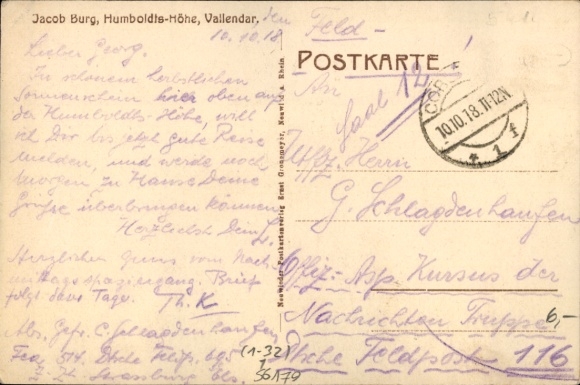 Jacob Burg, Humboldts-Höhe, Vallendar, den
10.10.18
Lieber Georg.
In schönem herbstlichen
Sonnenschein hier oben auf
der Humboldts-Höhe, will
ich Dir bis jetzt gute Reise
melden, und werde noch
morgen zu Hause Deine
Grüße überbringen können.
Herzlichst Dein
Herzlichen Gruss vom Nach-
mittagsspaziergang. Brief
folgt dieser Tage. Th. K
Abs. Gefr. C. Schlagdenhaufen
Fea 514. Dtsche Feldp. 695
z. Zt. Strassburg Els.
Neuwieder Postkartenverlag Ernst Grossmeyer, Neuwied a. Rhein.
Feld-
POSTKARTE
An
Saal 12
COB
10.10.18.11-12N
* 1 f
Uffz. Herrn
G. Schlagdenhaufen
Offiz-Asp. Kursus der
Nachrichten Truppe
Dtsche Feldpost 116
6,-
(1-32)
I
56179